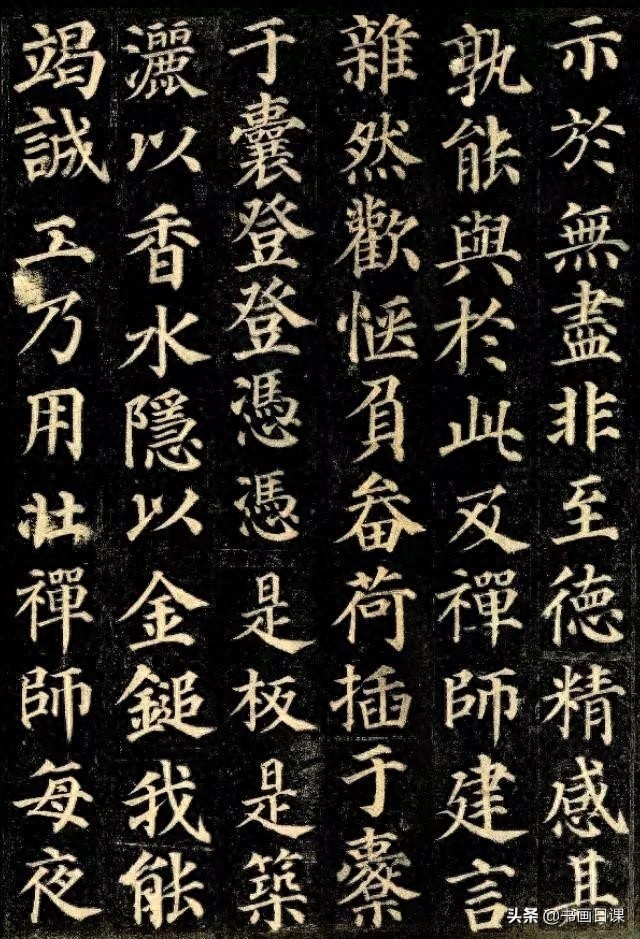 示於無盡非至德精感其
孰能與於此及禪師建言
雜然歡愜負畚荷插于橐
于囊登登憑憑是板是築
灑以香水隱以金鎚我能
竭誠工乃用壯禪師每夜
头条 @书画日课